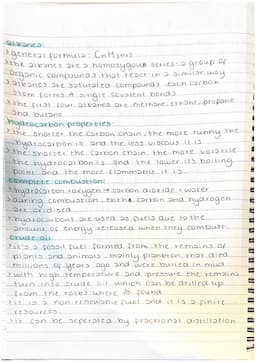 alkanes:
> general formula: CnH2n+2
> the alkanes are a homozygous series: a group of
organic compounds that react in a similar way
> alkanes are saturated compounds: each carbon
atom forms 4 single covalent bonds
> the first four alkanes are methane, ethane, propane
and butane
hydrocarbon properties:
> the shorter the carbon chain, the more runny the
hydrocarbon is and the less viscous it is
> the shorter the carbon chain, the more volatile
the hydrocarbon is and the lower its boiling
point and the more flammable it is
complete combustion:
> hydrocarbon + oxygen → carbon dioxide + water
> during combustion, both carbon and hydrogen
are oxidised
> hydrocarbons are used as fuels due to the
amount of energy released when they combust
crude oil
> it is a fossil fuel formed from the remains of
plants and animals, mainly plankton, that died
millions of years ago and were buried in mud
> with high temperature and pressure the remains
turn into crude oil which can be drilled up
from the rocks where its found
> it is a non renewable fuel and it is a finite
resources
> it can be seperated by fractional distillation